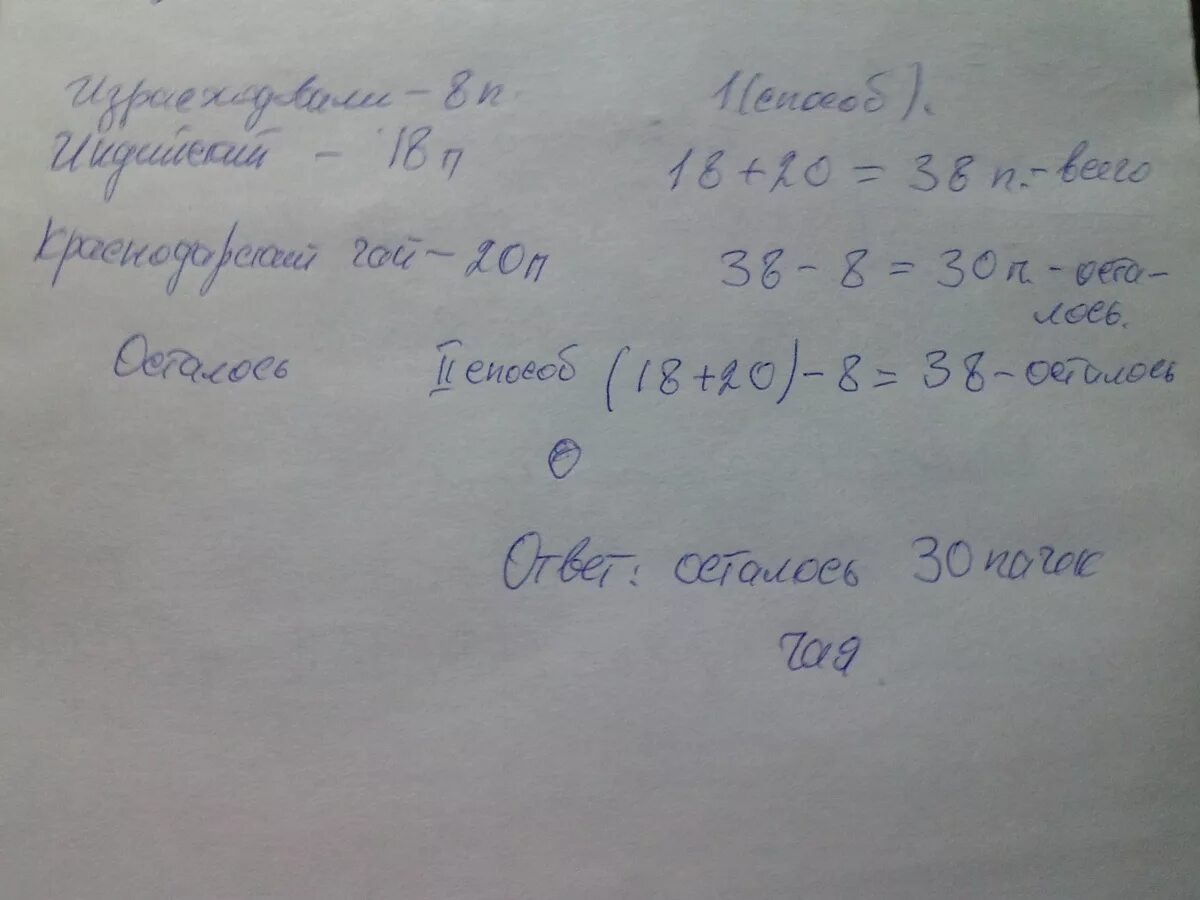 Израсходвали - 8 п.
Индийский - 18 п
Краснодарский чай - 20 п
Осталось
1 (способ).
18 + 20 = 38 п. - всего
38 - 8 = 30 п. - оста-
лось.
II способ (18 + 20) - 8 = 38 - осталось
Ответ: осталось 30 пачек
чая